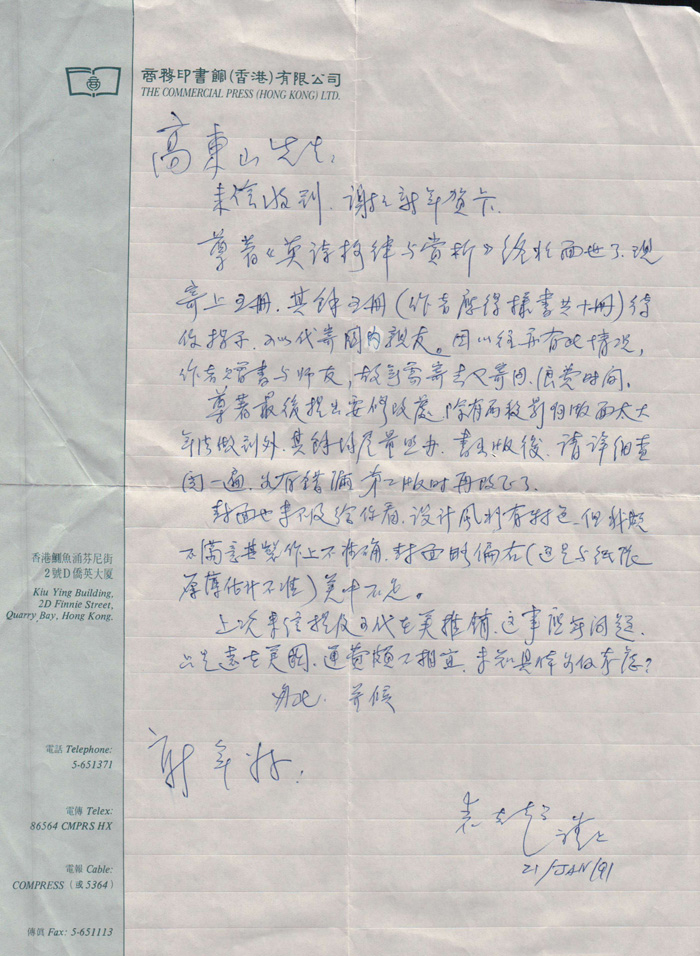 商務印書館(香港)有限公司
THE COMMERCIAL PRESS (HONG KONG) LTD.
高東山先生:
来信收到.谢谢新年贺卡.
尊著《英诗格律与赏析》终於面世了.现
寄上五册.其餘五册(作者应得樣書共十册)待
你指示.可以代寄國内親友。因以往再有此情况,
作者贈書与师友,故新需寄去又寄回.浪费时间.
尊著最後提出要修改處,除有
做到外.其餘均尽量照办.書出版後.请详细查
阅一遍.如有错漏第二版时再改正了.
封面也未及给你看.设计风格有特色.但我頗
不满意其製作上不准确.封面略偏右(这是与纸张
厚薄估计不准)美中不足。
上次来信提及可代在美推销.这事应无问题.
只是远在美國.運费頗不相宜.未知具体如何本意?
专此.并候
新年好.
谨上
21/JAN/91
香港鰂魚涌芬尼街
2號D僑英大廈
Kiu Ying Building,
2D Finnie Street,
Quarry Bay, Hong Kong.
電話 Telephone:
5-651371
電傳 Telex:
86564 CMPRS HX
電報 Cable:
COMPRESS (或5364)
傳眞 Fax: 5-651113